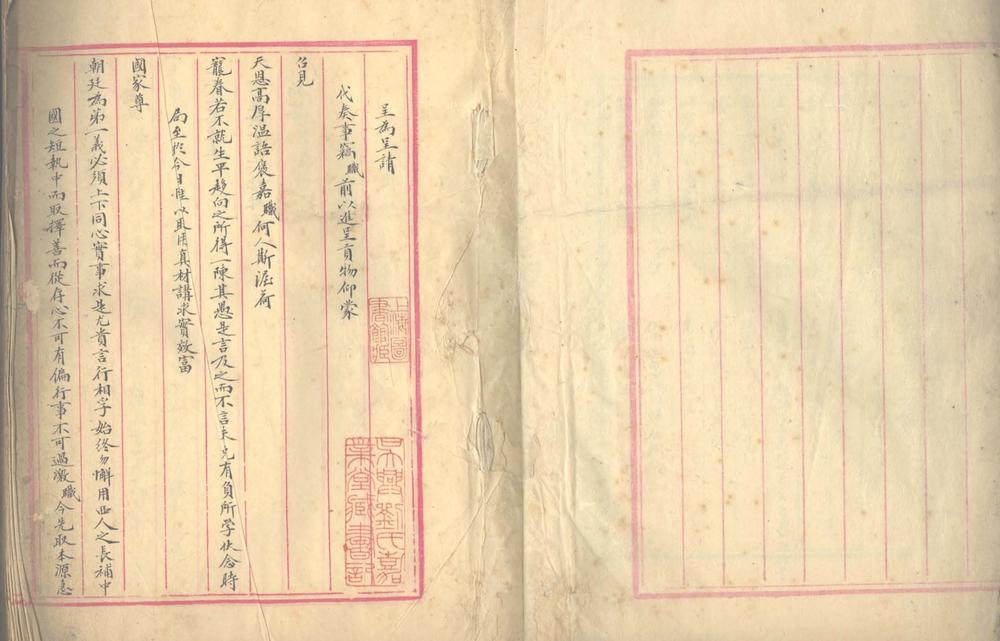 呈為呈請
代奏事竊職前以進呈貢物仰蒙
召見
天恩高厚溫語褒嘉職何人斯渥荷
寵眷若不就生平趨向之所得一陳其愚是言及之而不言未免有負所學伏念時
局至於今日惟以取用真材講求實效富
國家尊
朝廷為第一義必須上下同心實事求是尤貴言行相孚始終勿懈用西人之長補中
國之短執中而取擇善而從存心不可有偏行事不可過激職今先取本源急
上海圖
書館藏
吳興劉氏嘉
業堂藏書記